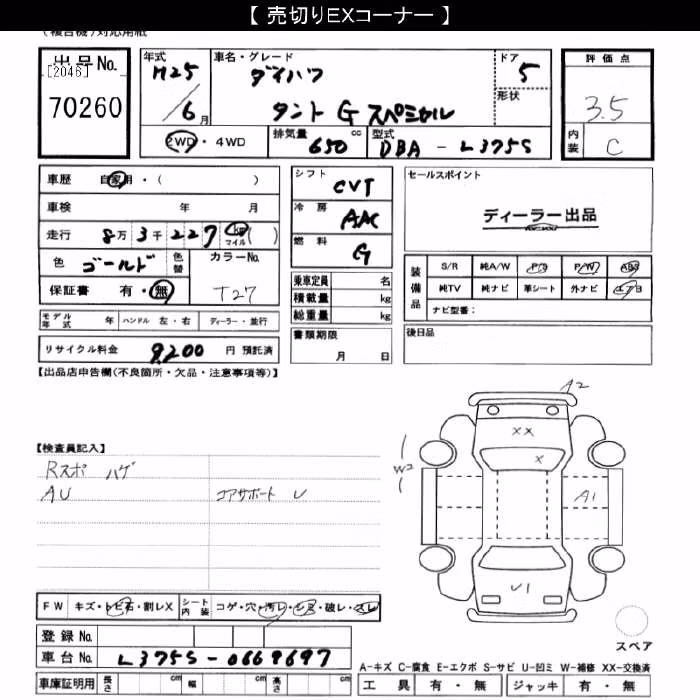 【 売切りEXコーナー 】
(複合機)対応用紙
出品No.
[2046]
70260
年式 H25 / 6 月
車名・グレード
ダイハツ
タント G スペシャル
ドア 5
形状
評価点
3.5
内装 C
2WD・4WD
排気量 650 cc
型式 DBA - L375S
車歴 自家用・( )
車検 年 月
走行 8万3千227 km マイル ( )
色 ゴールド 色替
カラーNo. T27
保証書 有・無
シフト CVT
冷房 AAC
燃料 G
乗車定員 名
積載量 kg
総重量 kg
セールスポイント
ディーラー出品
装備品
S/R 純A/W P/S P/W ABS
純TV 純ナビ 革シート 外ナビ エアB
ナビ型番：
モデル年式 年 ハンドル 左・右 ディーラー・並行
リサイクル料金 9,200 円 預託済
書類期限 月 日
後日品
【出品店申告欄(不良箇所・欠品・注意事項等)】
【検査員記入】
Rスポ ハゲ
AU
コアサポート U
A2
XX
X
W2
A1
U1
FW キズ・トビ石・割レX
シート内装 コゲ・穴・汚レ・シミ・破レ・スレ
スペア
登録No.
車台No. L375S-0669697
A-キズ C-腐食 E-エクボ S-サビ U-凹ミ W-補修 XX-交換済
車庫証明用 長さ cm 幅 cm 高さ cm
工具 有・無 ジャッキ 有・無